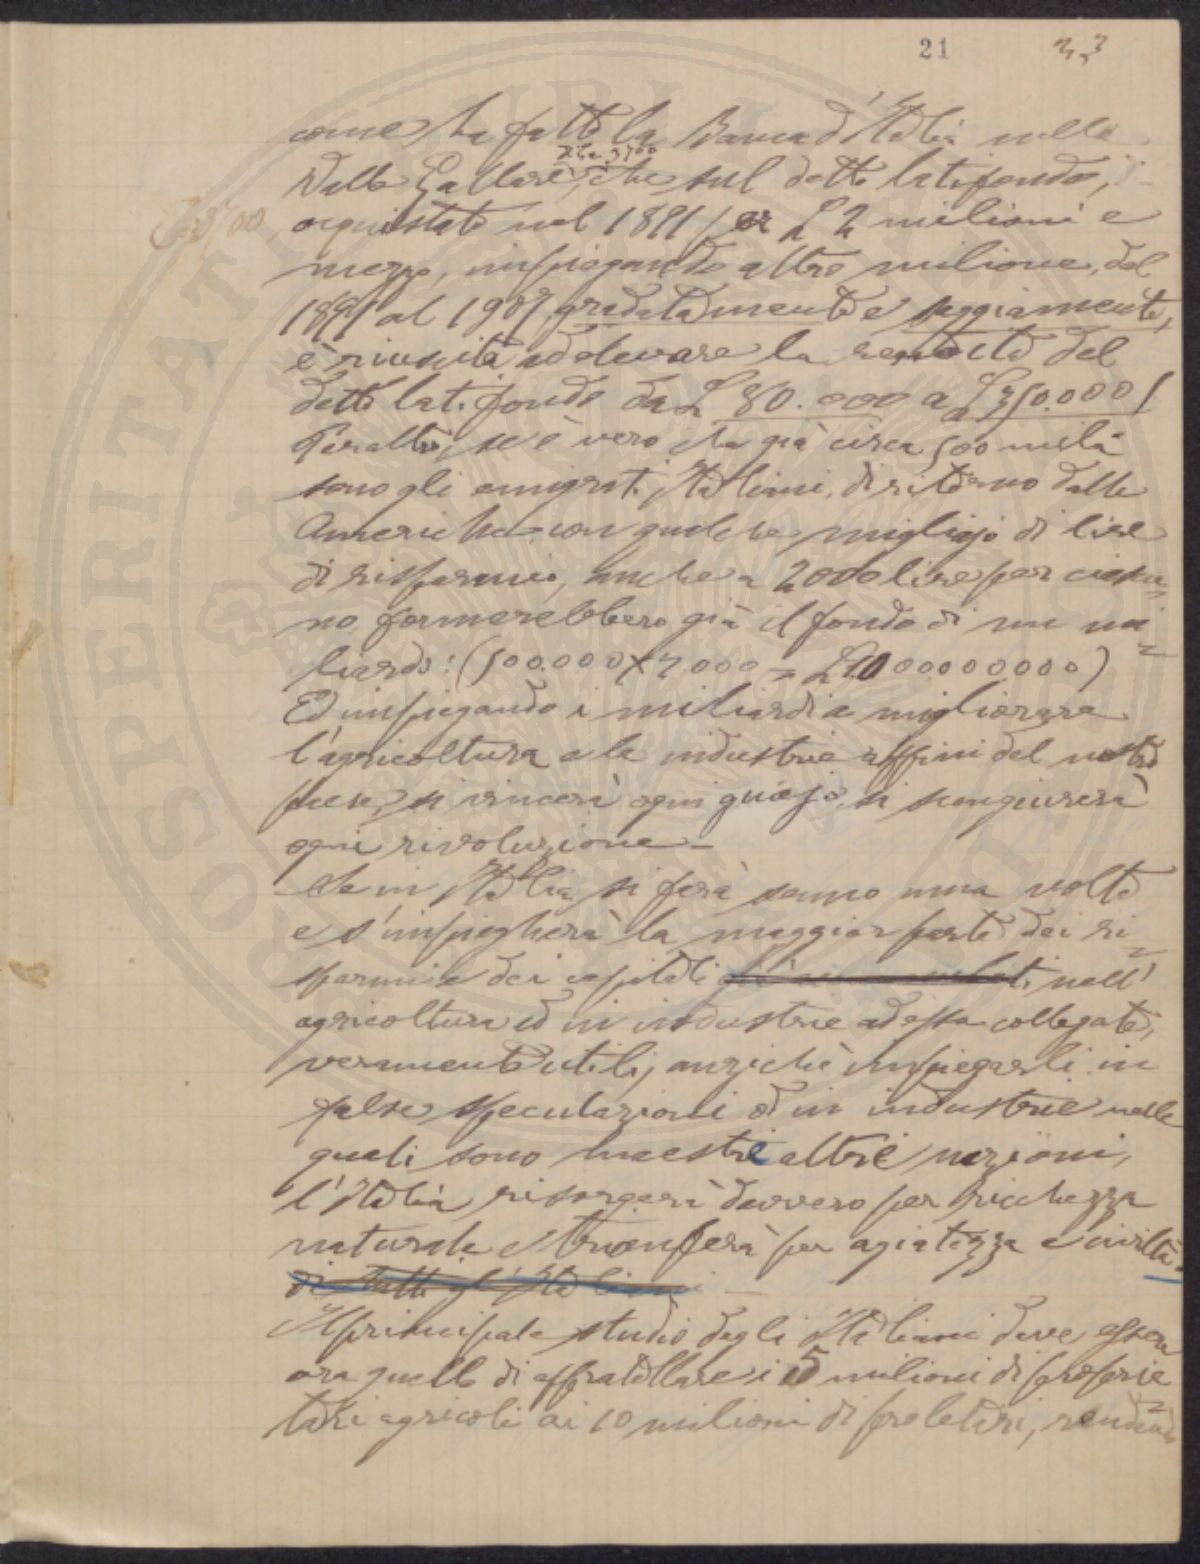 21
come ha fatto la Banca d'Italia nella
Valle Gallare, che sul detto latifondo,
Ha 3700
acquistato nel 1891 per £ 2 milioni e
mezzo, impiegando altro milione, dal
1891 al 1907 gradatamente e saggiamente,
è riuscita ad elevare la rendita del
detto latifondo da £ 80.000 a £ 350.000!
Peraltro, se è vero che già circa 500 mila
sono gli emigrati Italiani, di ritorno dalle
Americhe con qualche migliajo di lire
di risparmio, anche a 2000 lire per ciascu=
no, formerebbero già il fondo di un mi=
liardo! (500.000 x 2.000 = £ 1.000000000)
Ed impiegando i miliardi a migliorare
l'agricoltura e le industrie affini del nostro
paese, si vincerà ogni guajo, si scongiurerà
ogni rivoluzione.—
Se in Italia si farà senno una volta
e s'impiegherà la maggior parte dei ri=
sparmi e dei capitali nell'
agricoltura ed in industrie ad essa collegate,
veramente utili, anzichè impiegarli in
false speculazioni od in industrie nelle
quali sono maestre altre nazioni,
l'Italia risorgerà davvero per ricchezza
naturale e trionferà per agiatezza e civiltà.
di tutti gl'Italiani —
Il principale studio degli Italiani deve essere
ora quello di affratellare i 5 milioni di proprie=
tari agricoli ai 10 milioni di proletari, rendendo